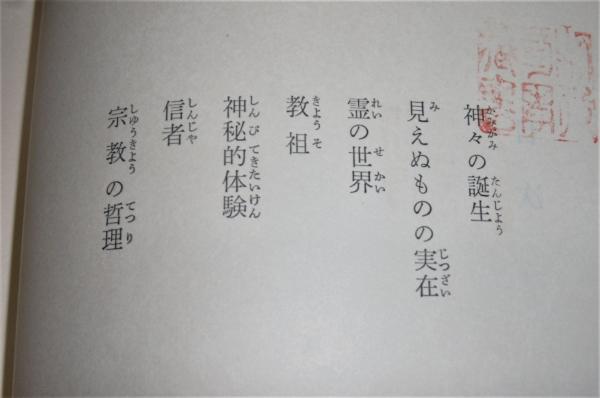 神々の誕生
見えぬものの実在
霊の世界
教祖
神秘的体験
信者
宗教の哲理